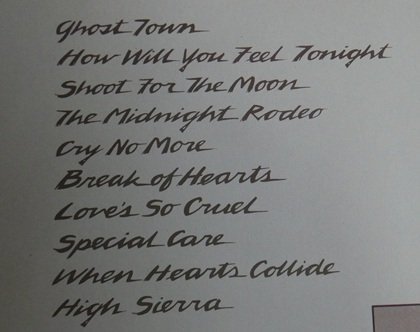 Ghost Town
How Will You Feel Tonight
Shoot For The Moon
The Midnight Rodeo
Cry No More
Break of Hearts
Love's So Cruel
Special Care
When Hearts Collide
High Sierra